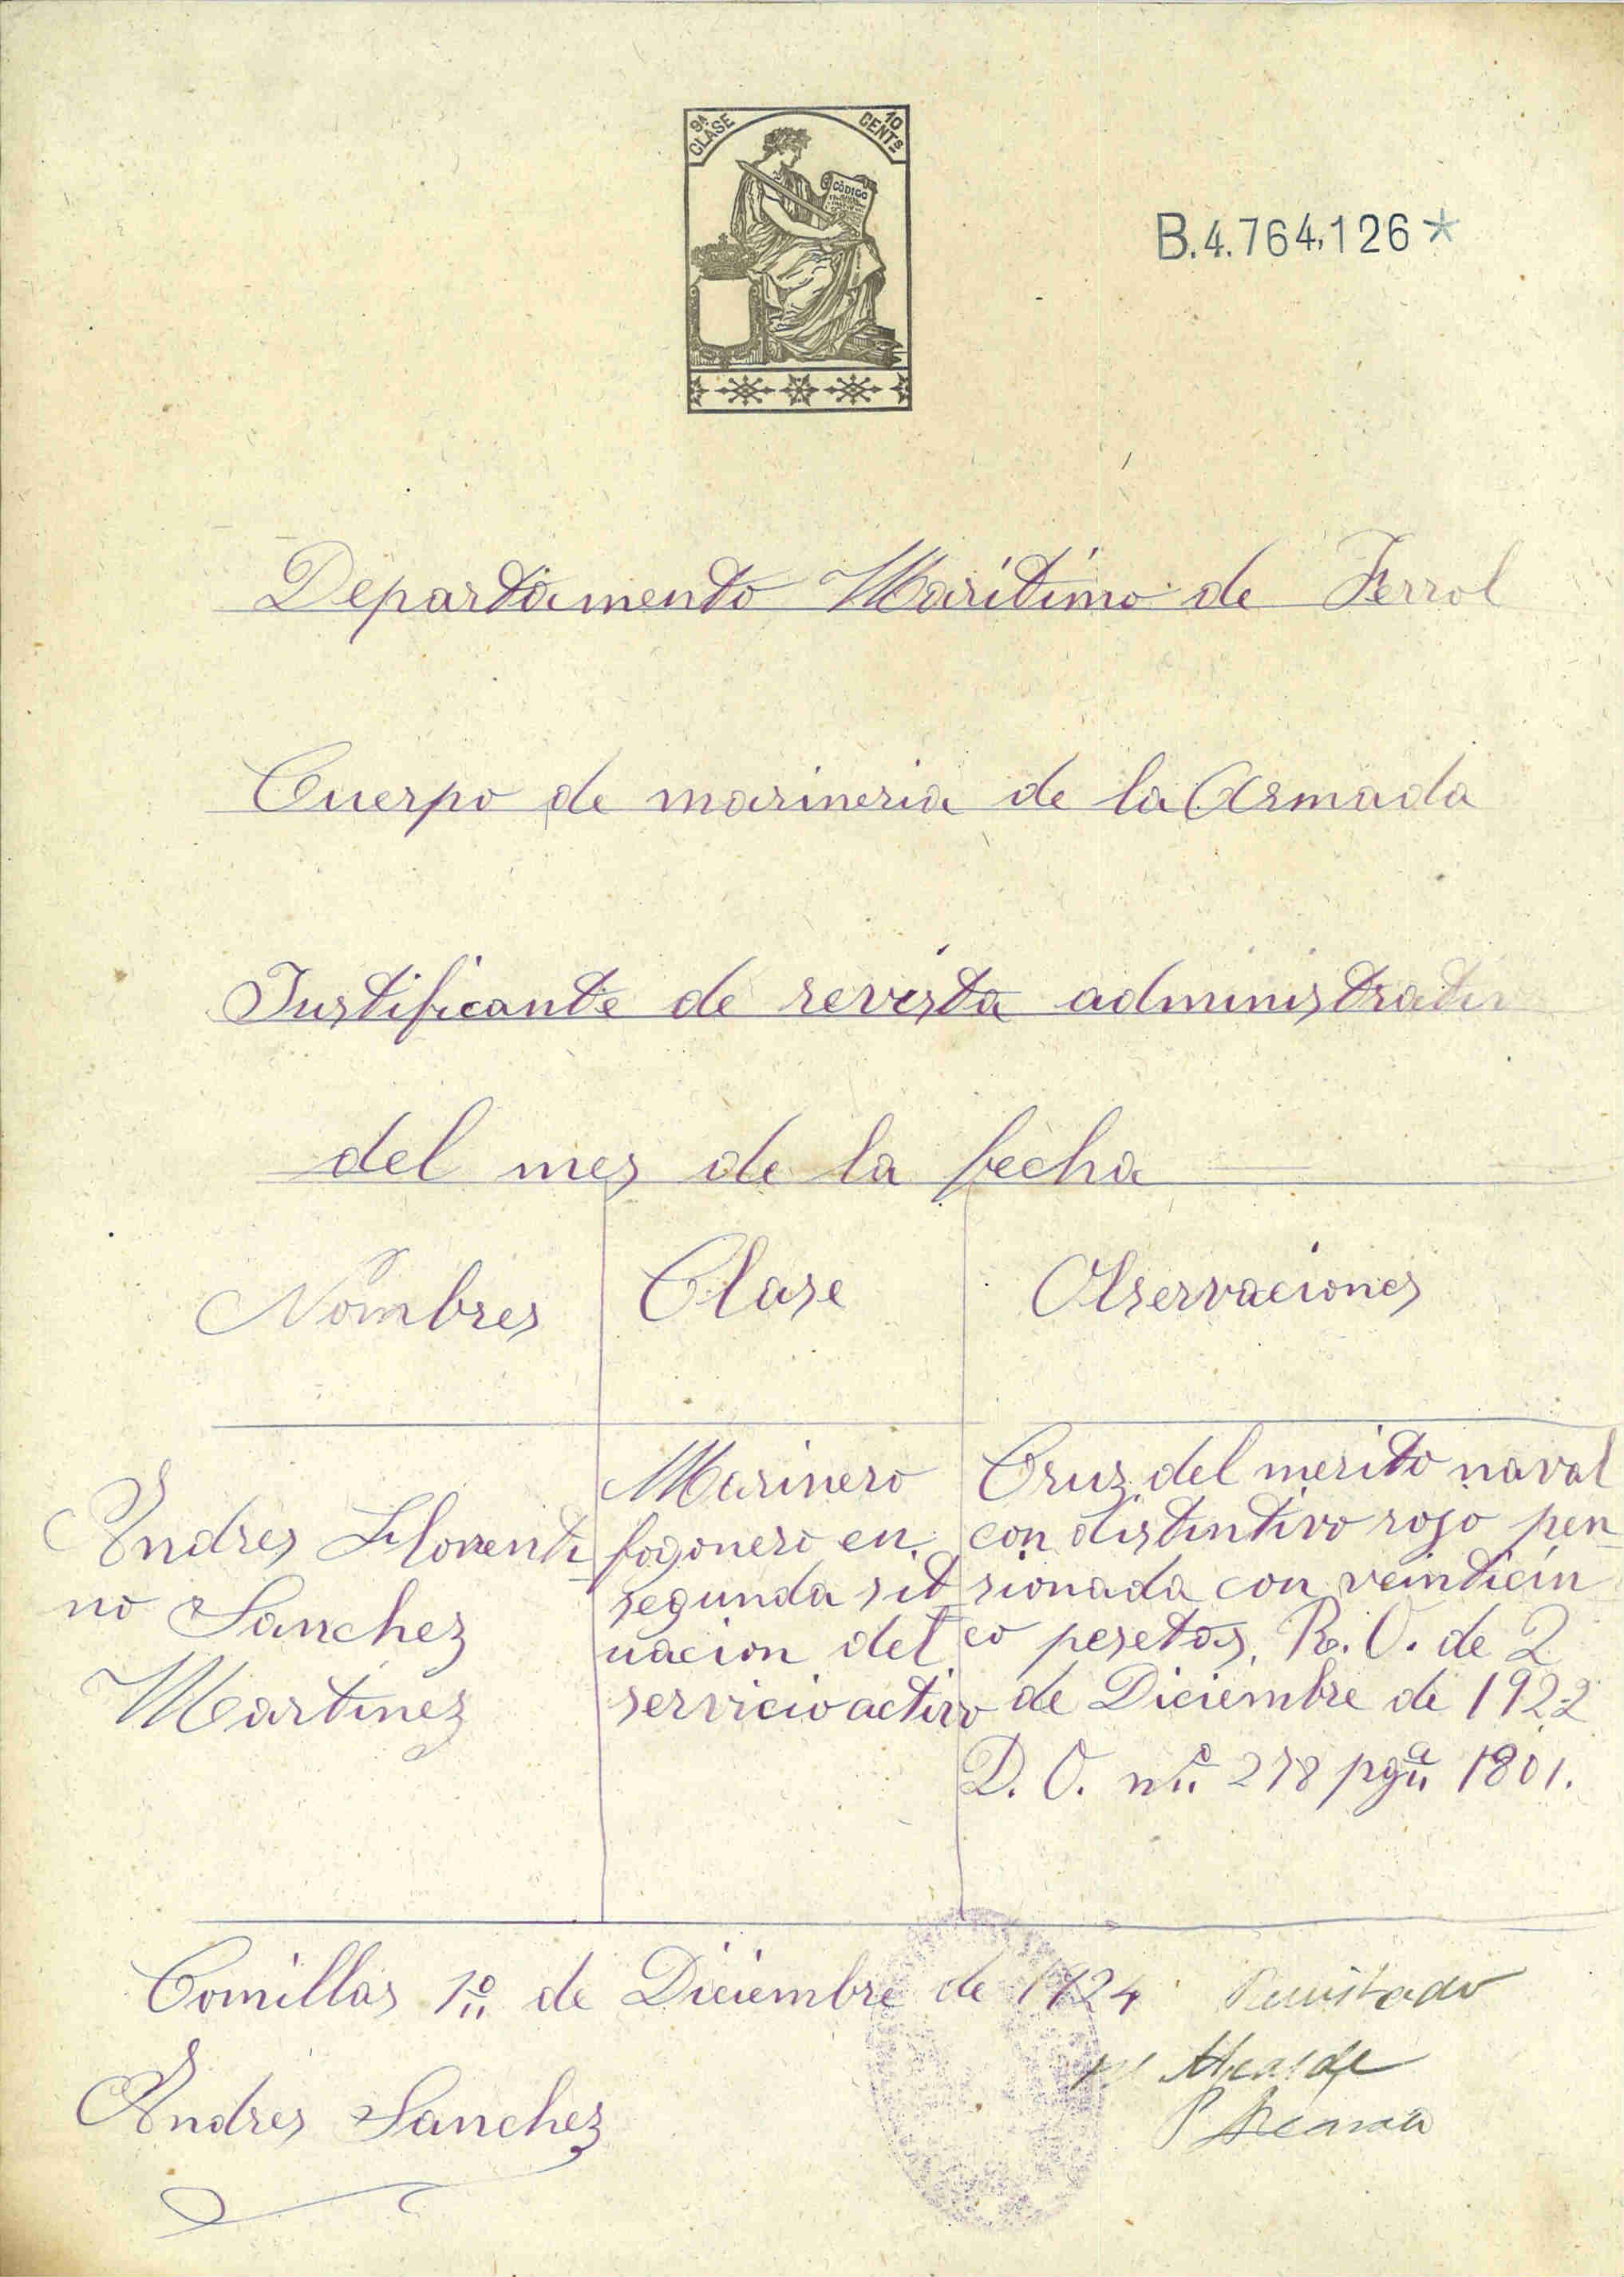 9ª CLASE
10 CENTS
CÓDIGO
B.4.764,126*
Departamento Marítimo de Ferrol
Cuerpo de marineria de la Armada
Justificante de revista administrativa
del mes de la fecha
Nombres
Clase
Observaciones
Andres Florenti-
no Sanchez
Martinez
Marinero
fogonero en
segunda sit
uacion del
servicio activo
Cruz del merito naval
con distintivo rojo pen-
sionada con veinticin
co pesetas, R. O. de 2
de Diciembre de 1922
D. O. nº 278 pgª 1801.
Comillas 1º de Diciembre de 1924
Revistado
Alcalde
Andres Sanchez